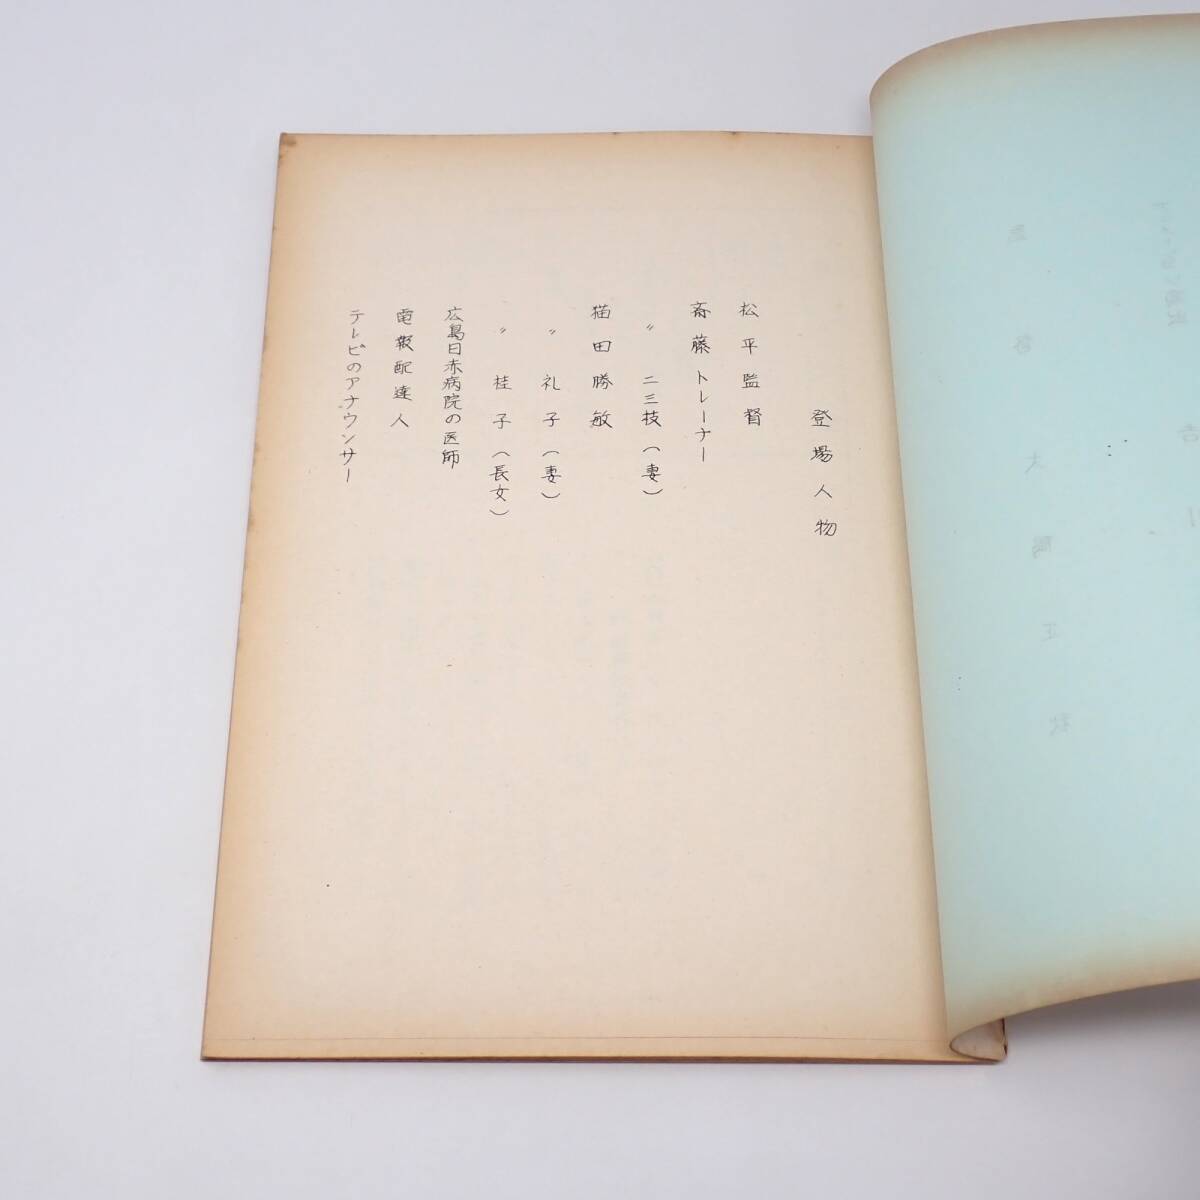 登場人物
松平監督
斎藤トレーナー
〃 二三枝（妻）
猫田勝敏
〃 礼子（妻）
〃 桂子（長女）
広島日赤病院の医師
電報配達人
テレビのアナウンサー